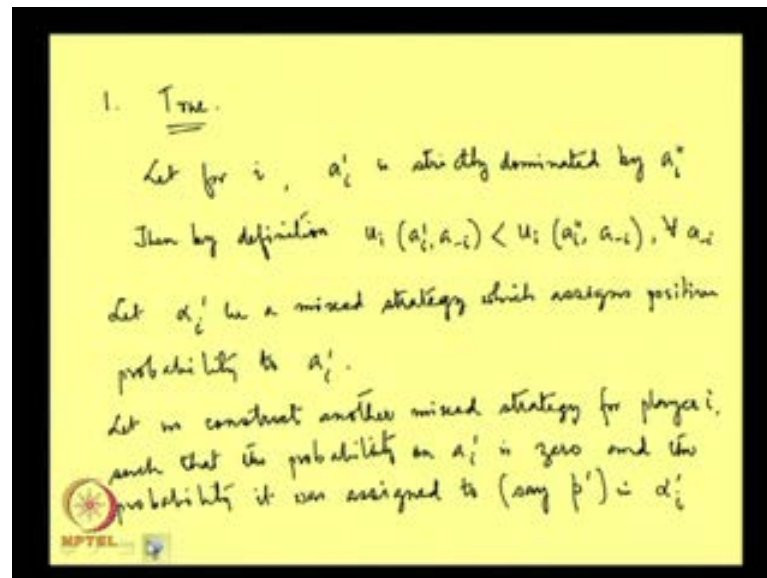 1. True.
Let for i, a_i' is strictly dominated by a_i''
Then by definition u_i (a_i', a_-i) < u_i (a_i'', a_-i), ∀ a_-i
Let α_i' be a mixed strategy which assigns positive
probability to a_i'.
Let us construct another mixed strategy for player i,
such that the probability on a_i' is zero and the
probability it was assigned to (say p') in α_i'
NPTEL